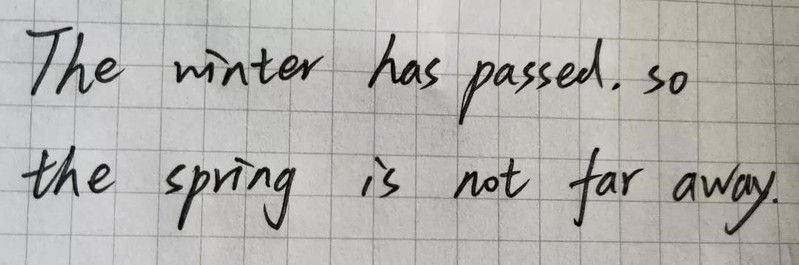 The winter has passed. so
the spring is not far away.